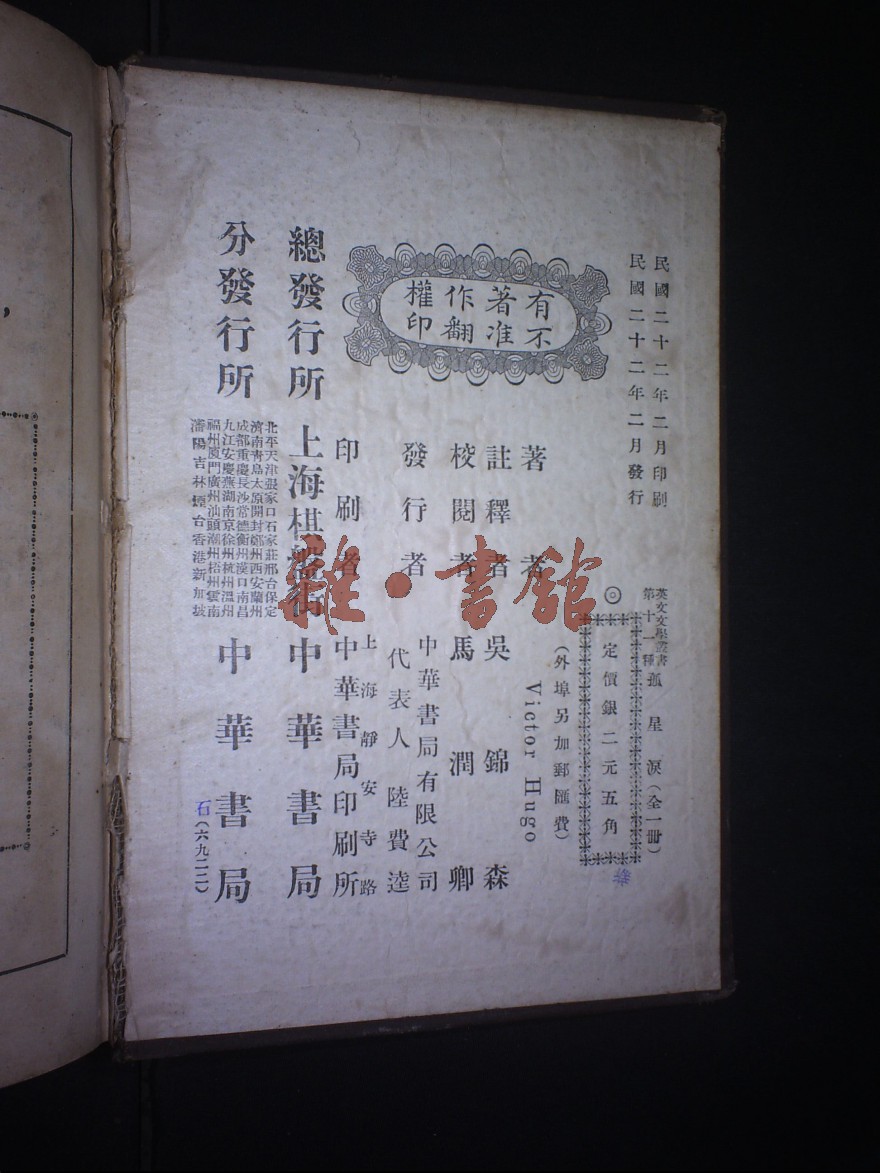 民國二十二年二月印刷
民國二十二年二月發行
英文文學叢書
第十一種
孤星淚(全一冊)
◎
定價銀二元五角
(外埠另加郵匯費)
有著作權
不准翻印
著者
Victor Hugo
註釋者
吳錦森
校閱者
馬潤卿
發行者
中華書局有限公司
代表人 陸費逵
印刷者
上海靜安寺路
中華書局印刷所
總發行所
上海棋盤街
中華書局
分發行所
北平天津張家口石家莊邢台保定
濟南青島太原開封鄭州西安蘭州
成都重慶長沙常德衡州漢口南昌
九江安慶蕪湖南京徐州杭州溫州
福州廈門廣州汕頭潮州梧州雲南
瀋陽吉林煙台香港新加坡
中華書局
石(六九二二)
雜·書館